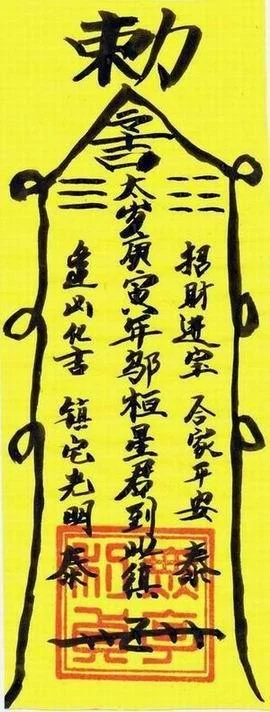 勅
令
太岁庚寅年邬桓星君到此镇
招財进宝 合家平安 泰
逢凶化吉 镇宅光明 泰